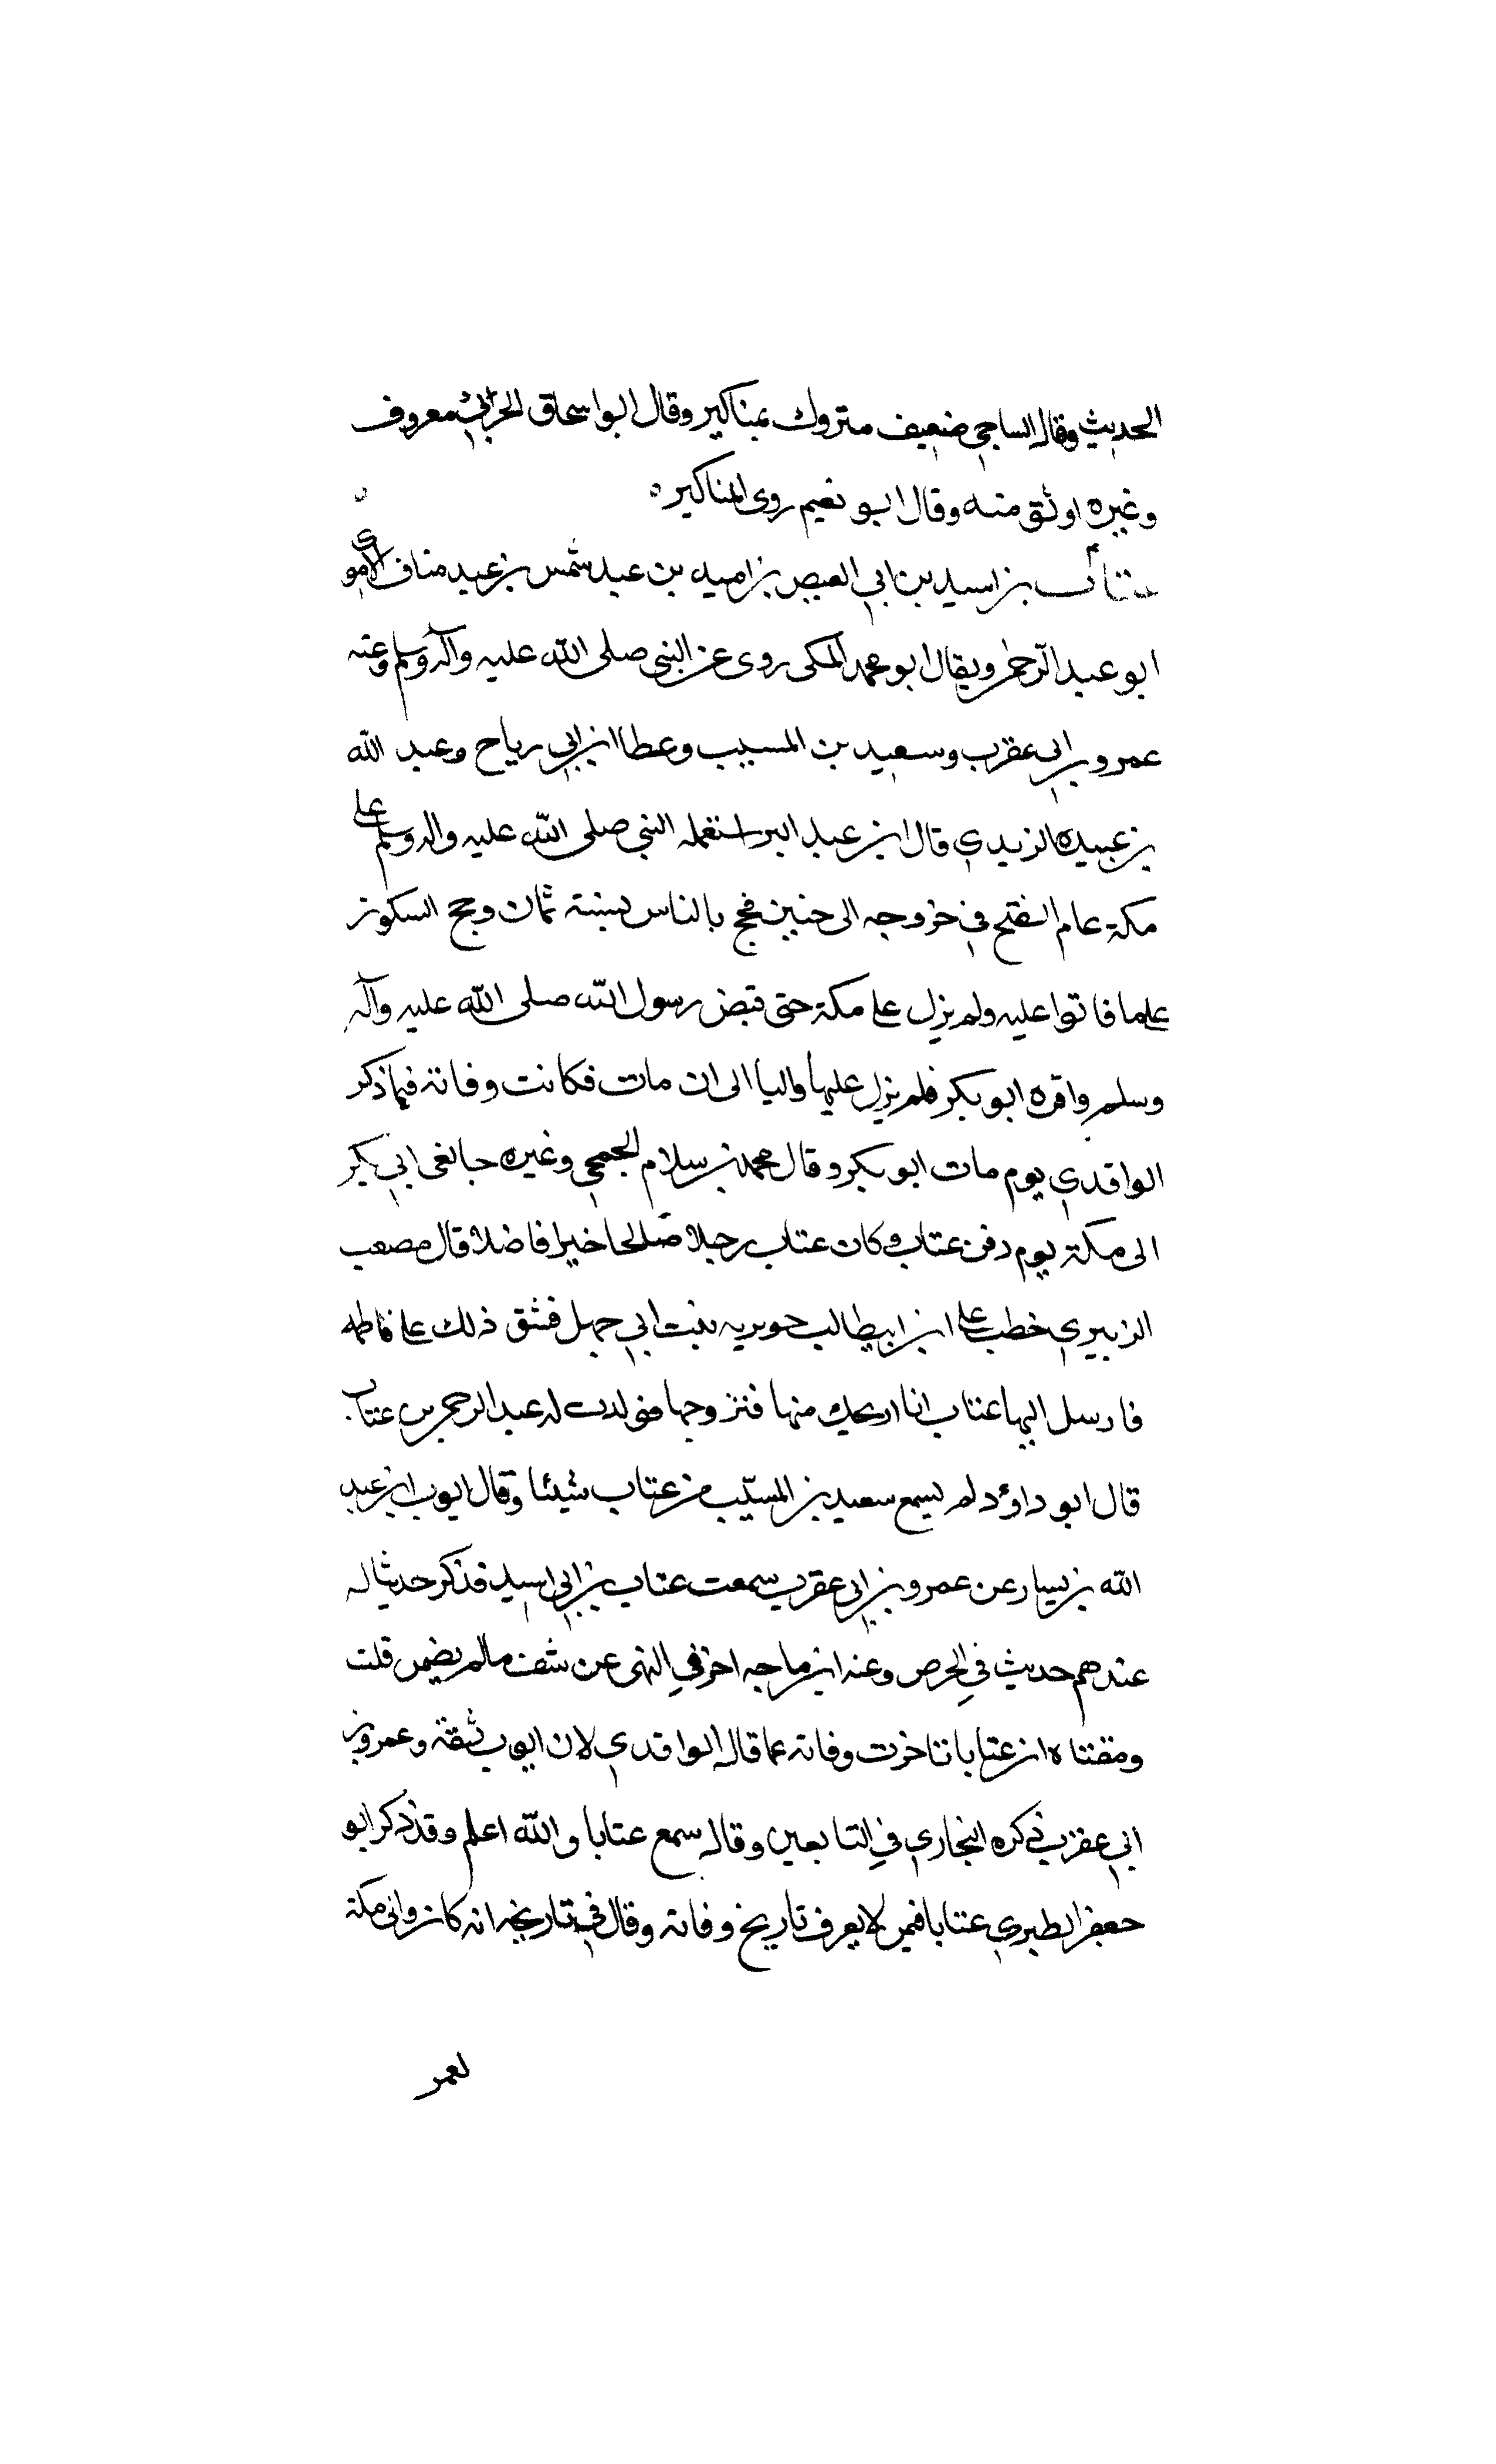 الحديث وقال الساجي ضعيف متروك بمناكير وقال ابو اسحاق الحربي معروف
وغيره اوثق منه وقال ابو نعيم روى المناكير ه
عتاب بن اسيد بن ابي العيص بن اميه بن عبد شمس بن عبد مناف الاموي
ابو عبد الرحمن ويقال ابو محمد المكى روى عن النبي صلى الله عليه وآله وسلم وعنه
عمرو بن ابي عقرب وسعيد بن المسيب وعطا ابن ابي رباح وعبد الله
بن عبيده الزبدي قال ابن عبد البر استعمله النبي صلى الله عليه واله وسلم على
مكة عام الفتح في خروجه الى حنين فحج بالناس سنة ثمان وحج المشركون
على ما كانوا عليه ولم يزل على مكة حتى قبض رسول الله صلى الله عليه وآله
وسلم واقره ابو بكر فلم يزل عليها واليا الى ان مات فكانت وفاته فيما ذكر
الواقدي يوم مات ابو بكر وقال محمد بن سلام الجمحي وغيره جا نعى ابي بكر
الى مكة يوم دفن عتاب وكان عتاب رجلا صالحا خيرا فاضلا قال مصعب
الزبيري خطب على ابن ابيطالب جويريه بنت ابي جهل فشق ذلك على فاطمه
فارسل اليها عتاب انا اريحك منها فتزوجها فولدت له عبد الرحمن بن عتاب
قال ابو داؤد لم يسمع سعيد بن المسيّب من عتاب شيئا وقال ايوب ابن عبد
الله بن يسار عن عمرو بن ابي عقرب سمعت عتاب بن ابي اسيد فذكر حديثا له
عندهم حديث في الخرص وعند ابن ماجه اخر في النهى عن شف مالم يضمن قلت
ومقتضاه ان عتابا تاخرت وفاته عما قاله الواقدي لان ايوب ثقة وعمرو بن
ابي عقرب ذكره البخاري في التابعين وقال سمع عتابا والله اعلم وقد ذكر ابو
جعفر الطبري عتابا فيمن لا يعرف تاريخ وفاته وقال في تاريخه انه كان والى مكة
لعمر